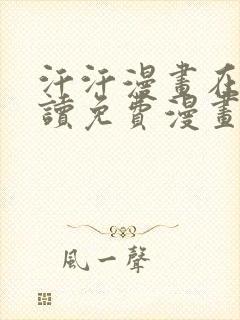 汗汗漫畫在
讀免費漫畫
風一聲